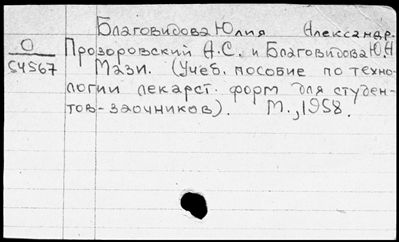 Благовидова Юлия Александр.
О
54567
Прозоровский А.С. и Благовидова Ю.А
Мази. (Учеб. пособие по техно-
логии лекарст. форм для студен-
тов-заочников). М., 1958.